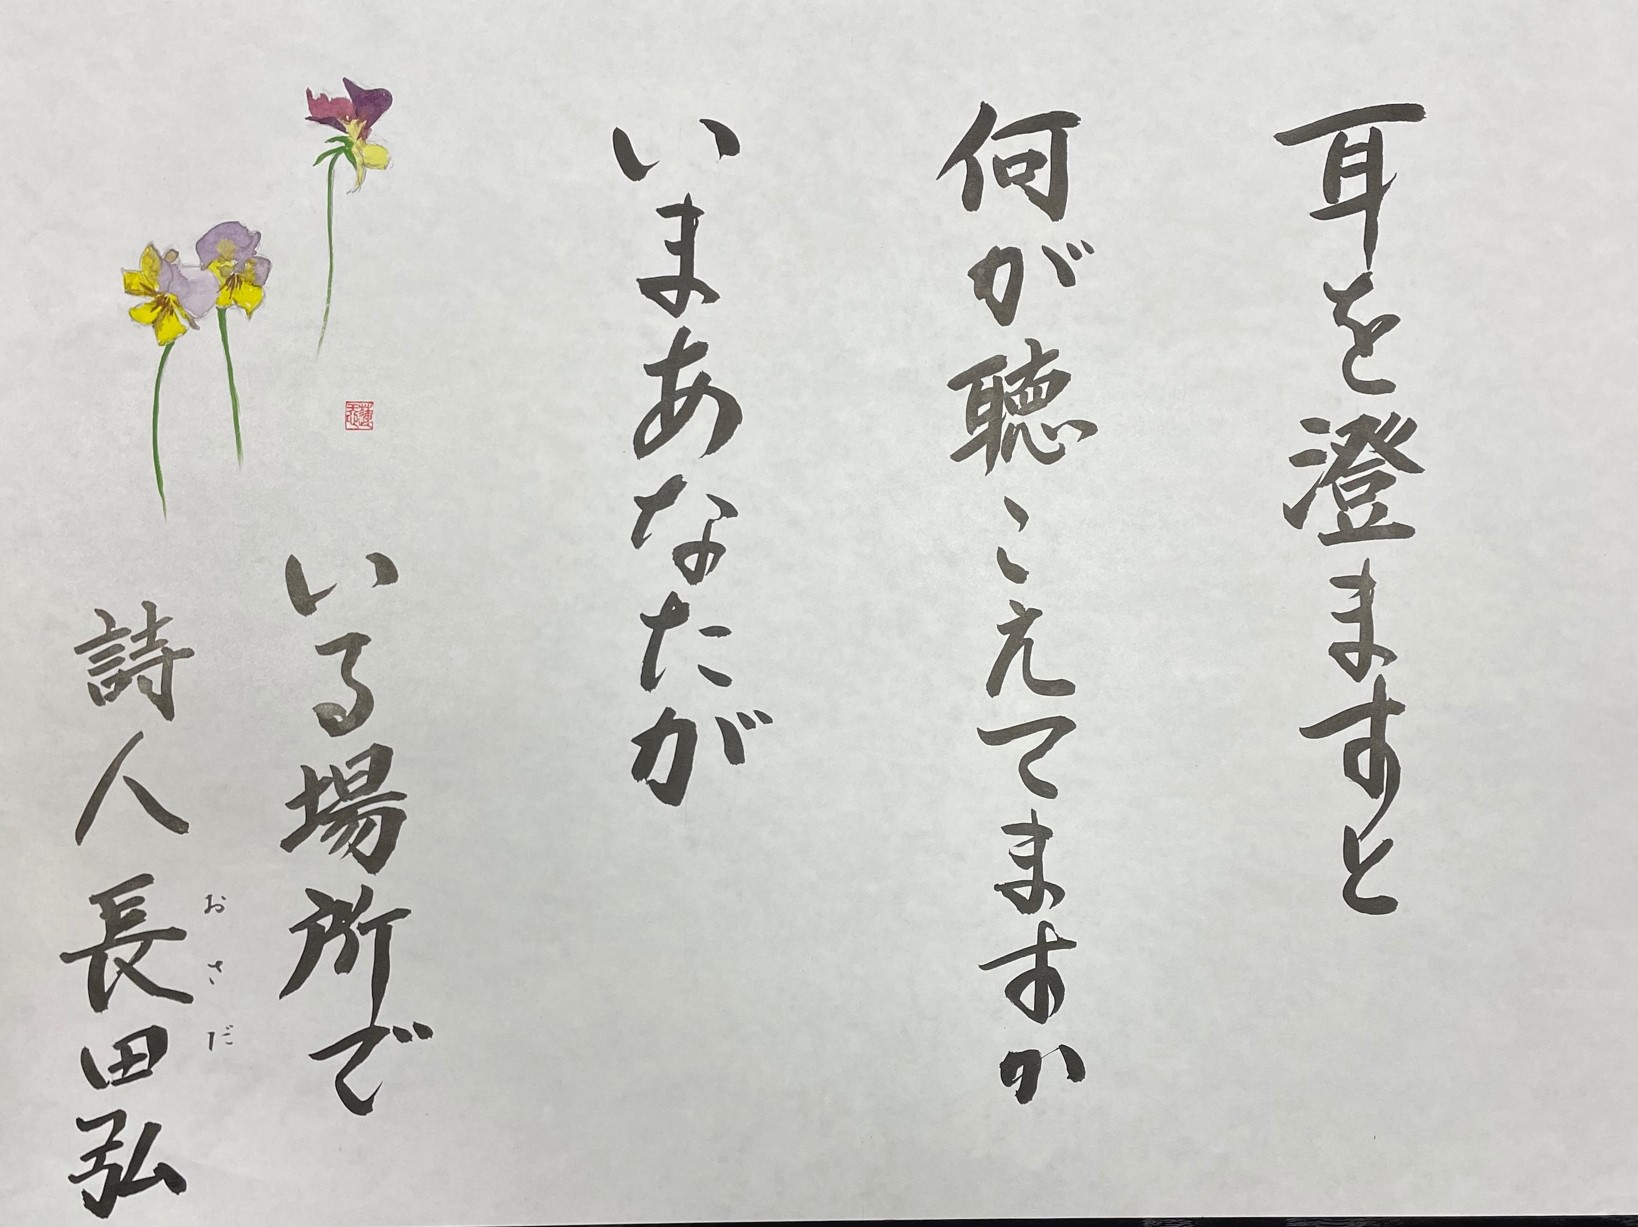 耳を澄ますと
何が聴こえてますか
いまあなたが
いる場所で
詩人 長田弘
おさだ